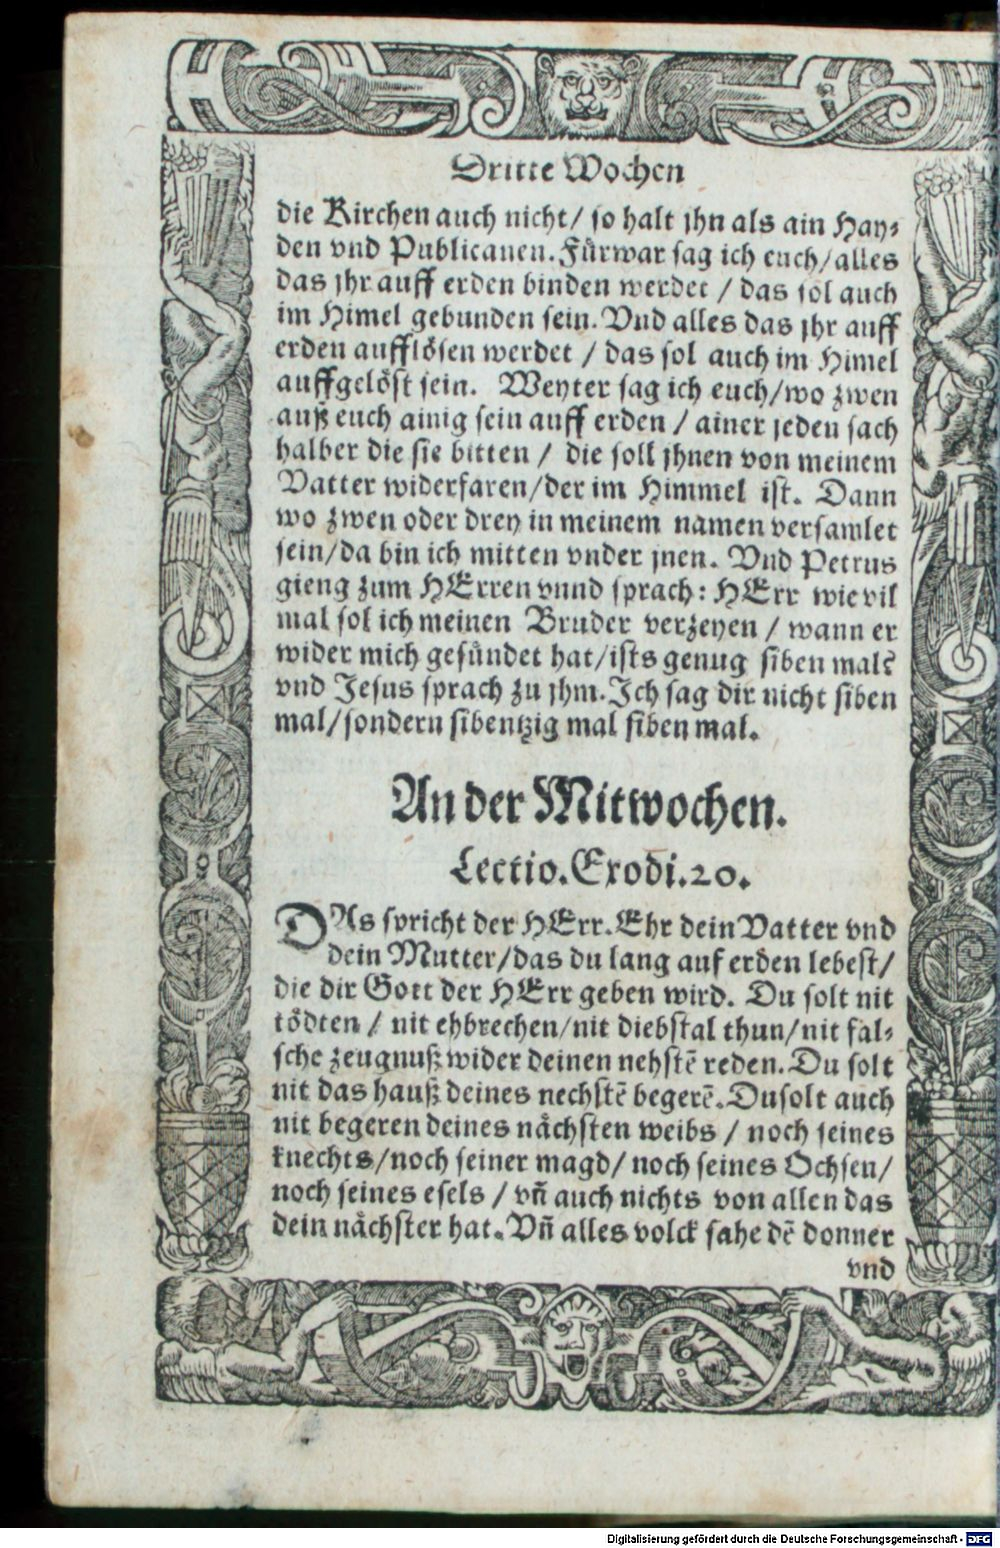 Dritte Wochen
die Kirchen auch nicht/ so halt jhn als ain Hay⸗
den vnd Publicanen. Fürwar sag ich euch/alles
das jhr auff erden binden werdet / das sol auch
im Himel gebunden sein. Vnd alles das jhr auff
erden aufflösen werdet / das sol auch im Himel
auffgelöst sein. Weyter sag ich euch/wo zwen
auß euch ainig sein auff erden / ainer jeden sach
halber die sie bitten / die soll jhnen von meinem
Vatter widerfaren/der im Himmel ist. Dann
wo zwen oder drey in meinem namen versamlet
sein/da bin ich mitten vnder jnen. Vnd Petrus
gieng zum HErren vnnd sprach: HErr wie vil
mal sol ich meinen Bruder verzeyen / wann er
wider mich gesündet hat/ists genug siben mal?
vnd Jesus sprach zu jhm. Ich sag dir nicht siben
mal/sondern sibentzig mal siben mal.
An der Mitwochen.
Lectio. Exodi. 20.
DAs spricht der HErr. Ehr dein Vatter vnd
dein Mutter/das du lang auf erden lebest/
die dir Gott der HErr geben wird. Du solt nit
tödten / nit ehbrechen/nit diebstal thun/nit fal⸗
sche zeugnuß wider deinen nehstē reden. Du solt
nit das hauß deines nechstē begerē. Du solt auch
nit begeren deines nåchsten weibs / noch seines
knechts/noch seiner magd/ noch seines Ochsen/
noch seines esels / vñ auch nichts von allen das
dein nåchster hat. Vñ alles volck sahe dē donner
vnd
Digitalisierung gefördert durch die Deutsche Forschungsgemeinschaft - DFG